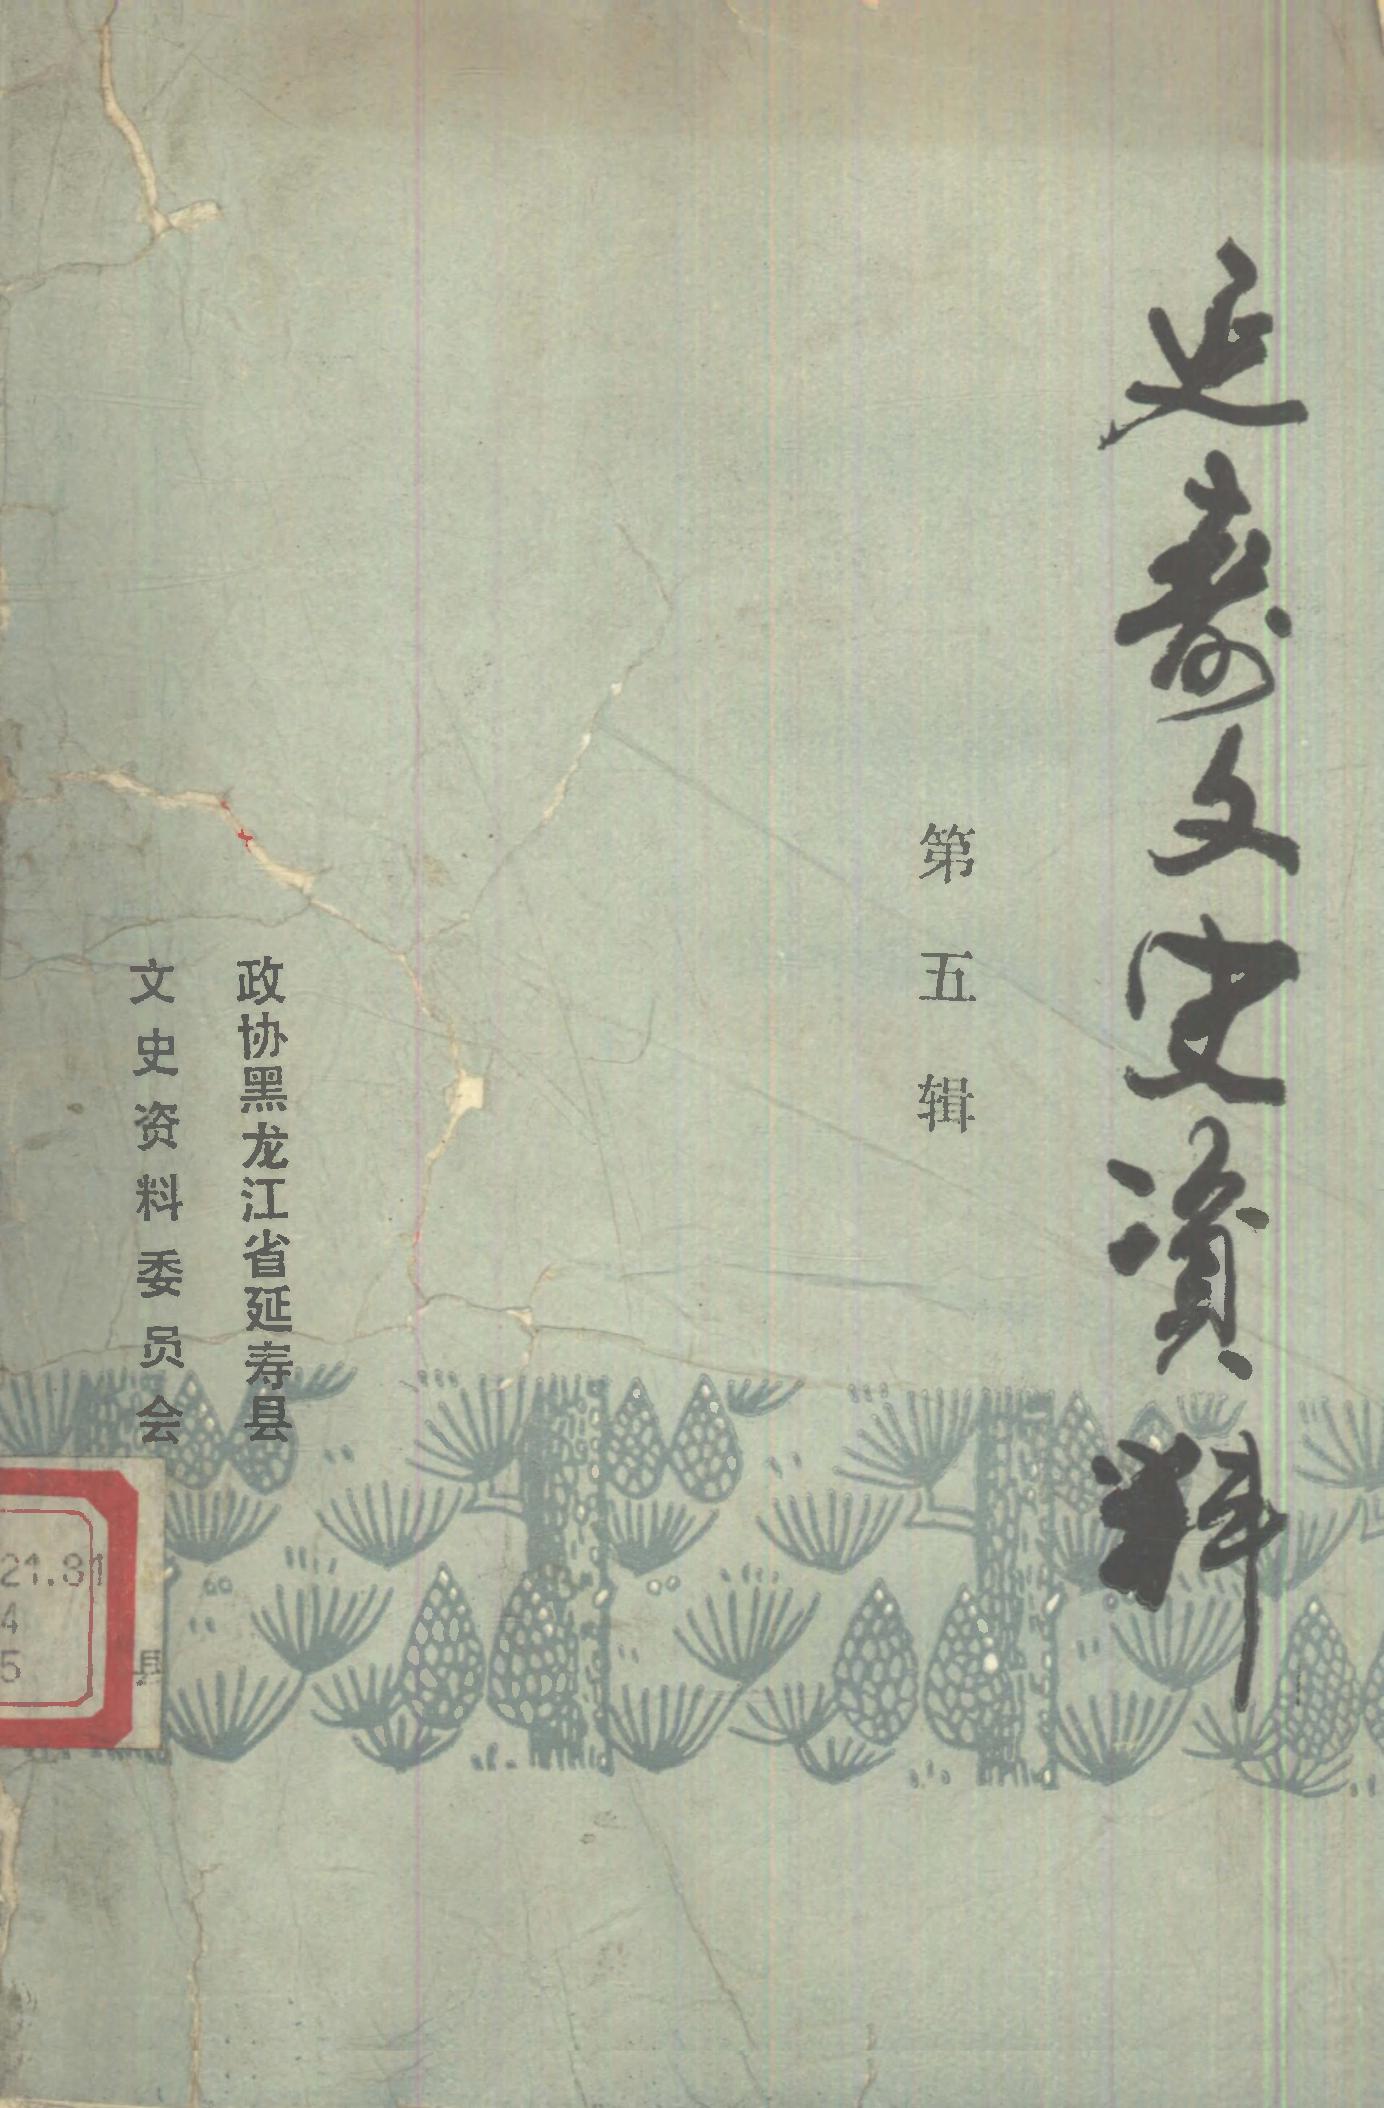 延寿文史資料
第五辑
政协黑龙江省延寿县
文史资料委员会
21.31
4
5
县